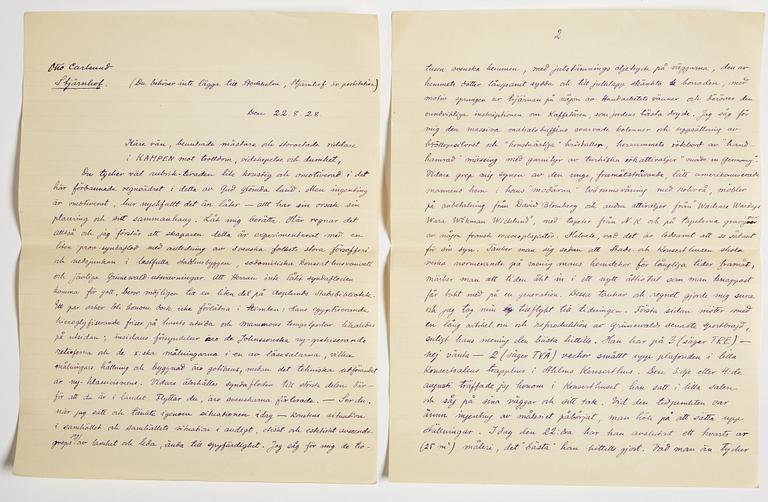 Otto Carlsund
Stjärnhof. (Du behöver inte lägga till Stockholm, Stjärnhof är poststation)
Den 22.8.28
Käre vän, beundrade mästare och storartade riddare
i KAMPEN mot trotdom, vidskepelse och dumhet,
Du tycker väl rubrik-tiraden lite konstig och omotiverad i det
här förbannade regnvädret i detta av Gud glömda land. Men ingenting
är omotiverat, hur nyckfullt det än låter — allt har sin orsak sin
placering och sitt sammanhang. Låt mig berätta. Här regnar det
alltså och jag förstår att skaparen detta är experimenterat med en
liten prov-syndaflod med anledning av svenska folkets stora
och nedsjunkan i stadshusbyggen, konserthusvanvett
och jävliga Grünewald-utsvävningar. Att Herran inte låtit syndafloden
komma för gott, beror möjligen till en liten del på Asplunds Stadsbibliotek.
Ett par saker bli honom dock icke förlåtna i himlen: dess egyptiserande
hieroglyfiserande friser på husets utsida och
på utsidan; insidans förgyndelser äro de Johnssonska ny-grekiserande
relieferna och de målningarna i en av läsesalarna, vilka
målningars hållning och byggnad äro gotiska, medan det tekniska utförandet
är ny-klassicismens. Vidare återhålles syndafloden till största delen
för att du är i landet. Flyttar du, äro svenskarna förlorade. — Ser du,
när jag satt och tänkte igenom situationen idag — konstens situation
i samhället och samhällets situation i andligt, etiskt och estetiskt avseende
greps jag av lamhet och leda, ända till spyfärdighet. Jag såg för mig de tio-
2
tusen svenska hemmen, med julstämnings oljetryck på väggarna, den av
hemmets dotter långsamt sydda och till julklapp skänkta bonaden, med
motiv sprungen ur hjärnan på någon av Handarbetets vänner och därover den
oundvikliga inskriptionen om Kaffetåren, som jordens bästa dryck. Jag såg för
mig den massiva matsalsbuffins svarvade kolonner och uppsättning av
bröllopssilvret och "konstnärliga" kristaller, herrummets rökbord av "hand-
hamrad" mässing med garnityr av turkiska rökattiraljer "made in Germany".
Vidare grep mig synen av den unge, framåtsträvande, lätt amerikaniserade
mannens hem i hans "moderna" tvårumsvåning med kokvrå, möbler
på avbetalning från David Blomberg och andra attiraljer från
Wara Wikman Wiklund, med tapeter från N.K. och på tapeterna gravyrer
av någon fransk
för sin syn. Tänker man sig sedan att Stads- och Konserthusen skola
verka normerande på menig mans hemdekor för långliga tider framåt,
märker man att tiden åkt in i ett nytt åttiotal som man knappast
får bukt med på en generation. Dessa tankar och regnet gjorde mig sura
och jag tog min tillflykt till tidningen. Första sidan möter med
en lång artikel om och reproduktion av Grünewalds senaste storbragd,
enligt hans mening den bästa hittills. Han har på 3 (säger TRE) —
nej vänta — 2 (säger TVÅ) veckor smällt upp plafonden i lilla
konsertsalens trapphus i Sthlms Konserthus. Den 3:dje eller 4:de
augusti träffade jag honom i Konserthuset, han satt i lilla salen
och såg på sina väggar och sitt tak. Vid den tidpunkten var
ännu ingenting av måleriet påbörjat, man höll på att sätta upp
ställningar. Idag den 22:dra har han avslutat ett kvarts ar
(25 m²) måleri, det "bästa" han hittill gjort. Vad man än tycker